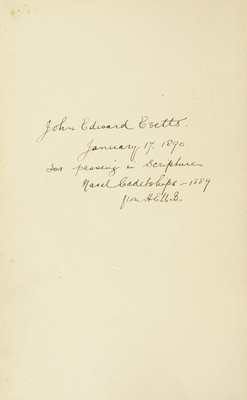 John Edward Evetts.
January, 17. 1890.
for passing in Scripture
Naval Cadetships - 1889
from H.E.M.B.